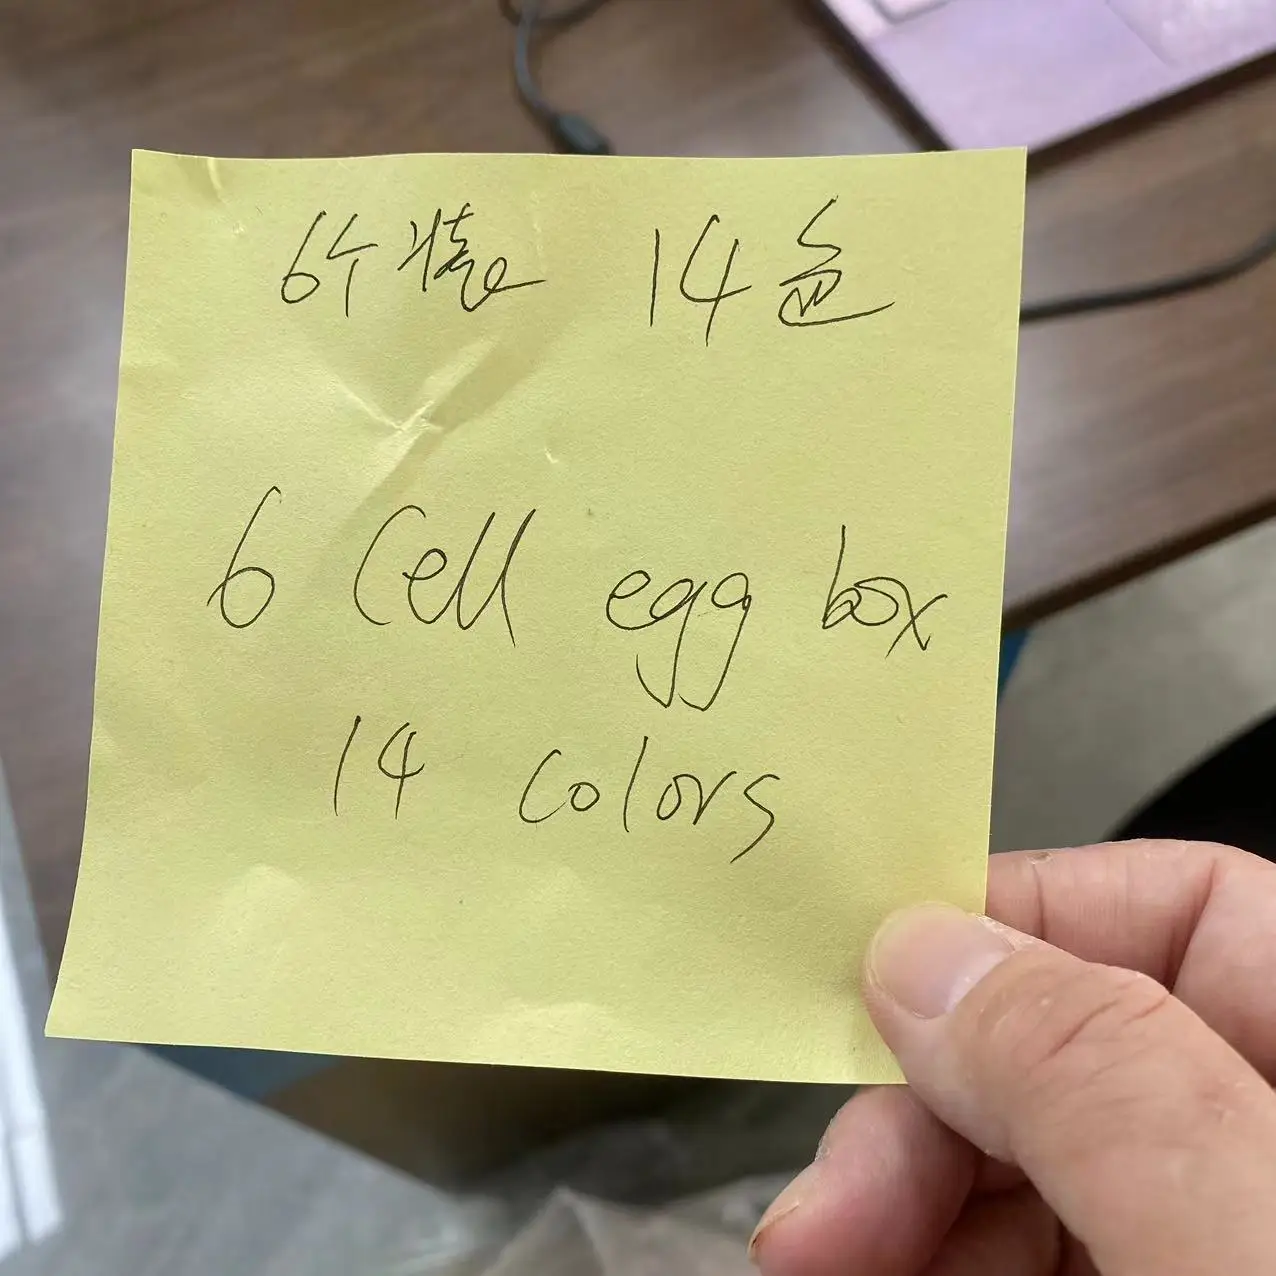 6个装 14色
6 Cell egg box
14 colors